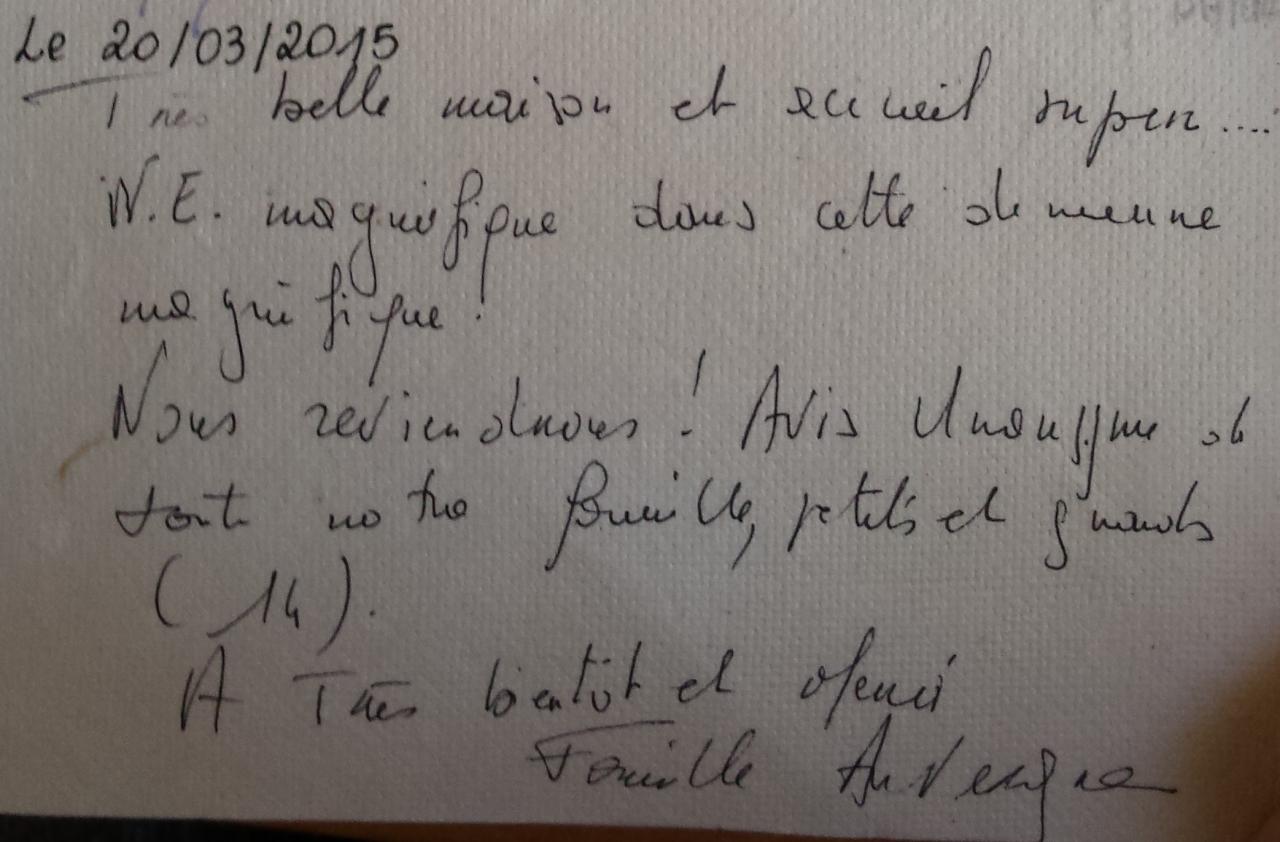 Le 20/03/2015
Très belle maison et accueil super....
W.E. magnifique dans cette demeure
magnifique !
Nous reviendrons ! Avis Unanyme de
toute notre famille, petits et grands
(14).
A Très bientôt et merci
Famille Auvergne